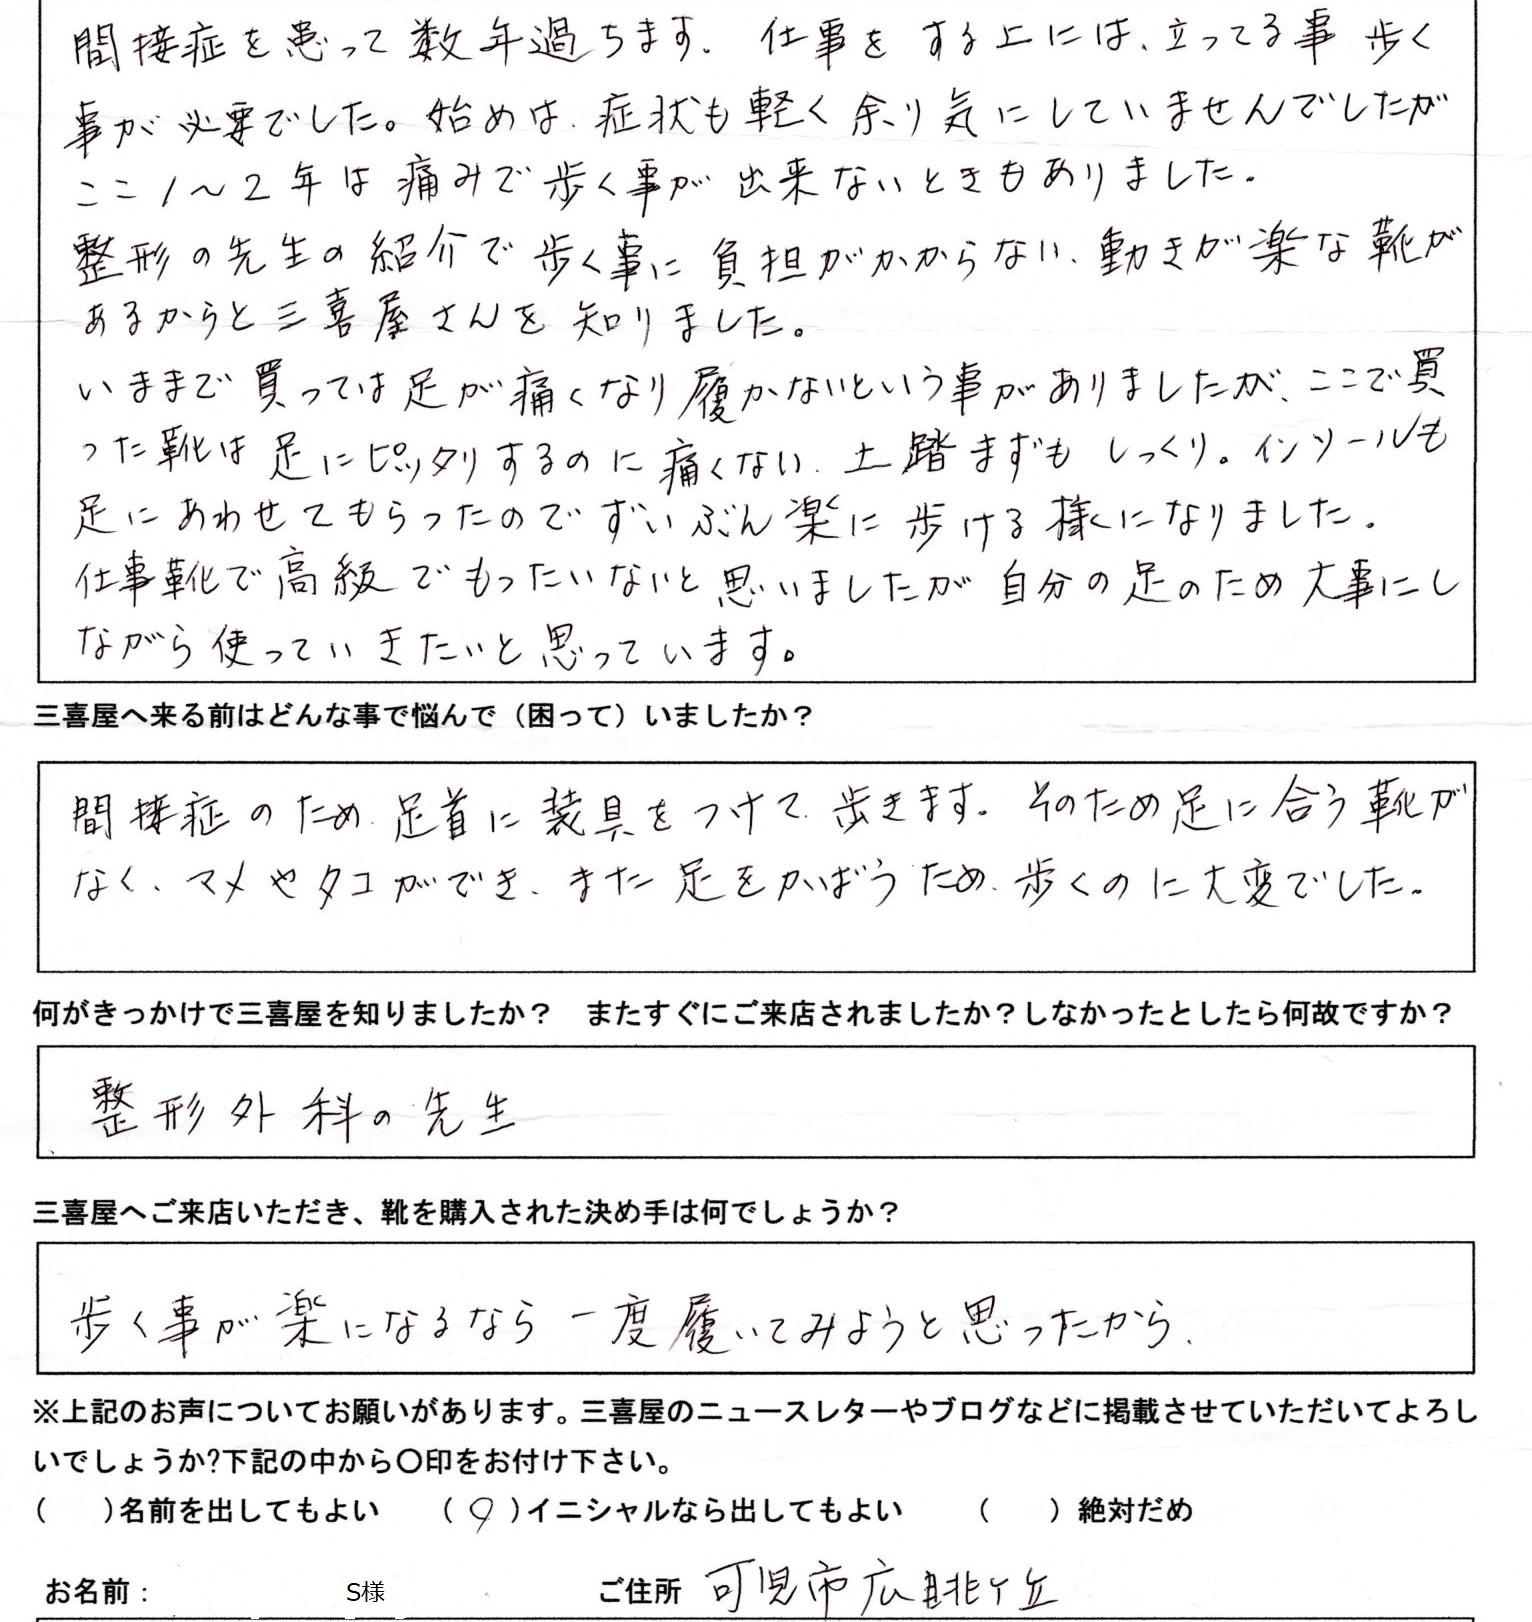 間接症を患って数年過ちます. 仕事をする上には、立ってる事 歩く
事が必要でした。始めは、症状も軽く余り気にしていませんでしたが
ここ1～2年は痛みで歩く事が出来ないときもありました。
整形の先生の紹介で歩く事に負担がかからない、動きが楽な靴が
あるからと三喜屋さんを知りました。
いままで買っては足が痛くなり履かないという事がありましたが、ここで買
った靴は足にピッタリするのに痛くない、土踏まずもしっくり。インソールも
足にあわせてもらったのでずいぶん楽に歩ける様になりました。
仕事靴で高級でもったいないと思いましたが自分の足のため大事にし
ながら使っていきたいと思っています。
三喜屋へ来る前はどんな事で悩んで（困って）いましたか？
間接症のため、足首に装具をつけて、歩きます。そのため足に合う靴が
なく、マメやタコができ、また足をかばうため、歩くのに大変でした。
何がきっかけで三喜屋を知りましたか？　またすぐにご来店されましたか？しなかったとしたら何故ですか？
整形外科の先生
三喜屋へご来店いただき、靴を購入された決め手は何でしょうか？
歩く事が楽になるなら一度履いてみようと思ったから、
※上記のお声についてお願いがあります。三喜屋のニュースレターやブログなどに掲載させていただいてよろし
いでしょうか?下記の中から〇印をお付け下さい。
(　　)名前を出してもよい　　(〇)イニシャルなら出してもよい　　(　　) 絶対だめ
お名前：　S様　ご住所　可児市広眺ケ丘